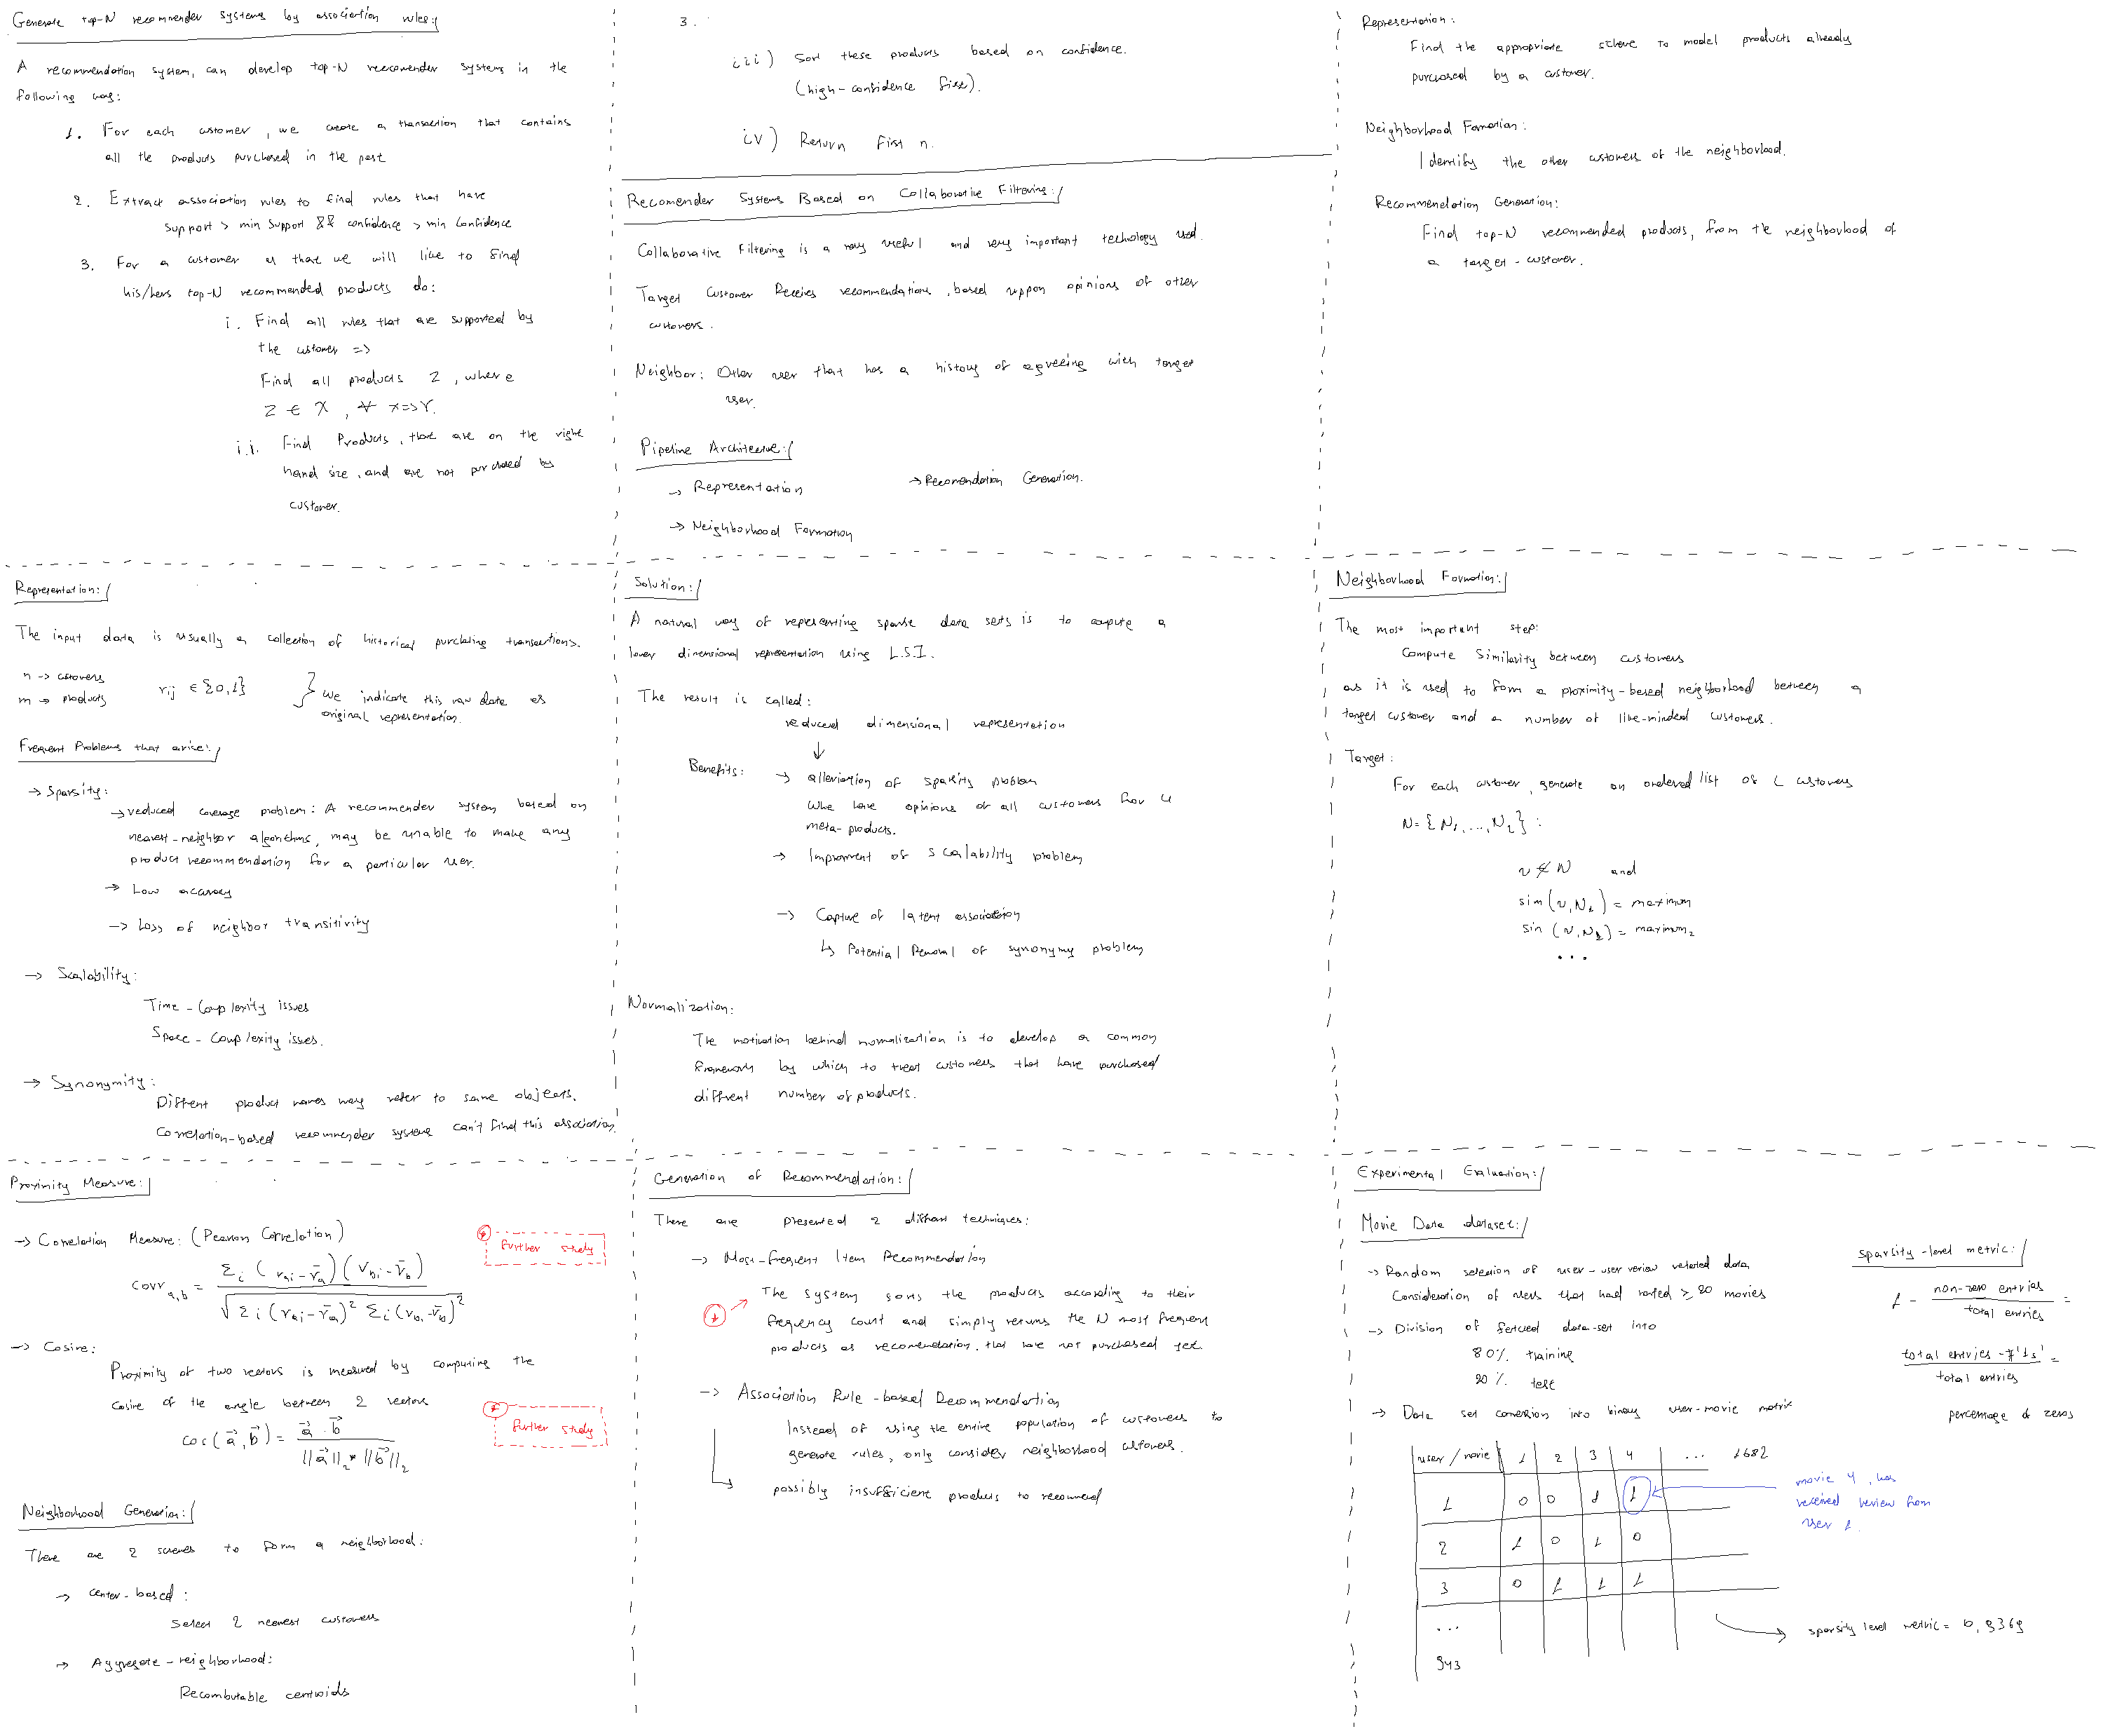 Generate top-N recommender systems by association rules:
A recommendation system, can develop top-N recommender systems in the
following way:
1. For each customer, we create a transaction that contains
all the products purchased in the past
2. Extract association rules to find rules that have
support > min support && confidence > min confidence
3. For a customer u that we will like to find
his/hers top-N recommended products do:
i. Find all rules that are supported by
the customer =>
Find all products Z, where
Z ∈ X, ∀ X=>Y.
i.i. Find Products, that are on the right
hand size, and are not purchased by
customer.
3.
iii) Sort these products based on confidence.
(high-confidence first).
iv) Return First n.
Recomender Systems Based on Collaborative Filtering:
Collaborative Filtering is a very useful and very important technology used.
Target Customer Receives recommendations, based uppon opinions of other
customers.
Neighbor: Other user that has a history of agreeing with target
user.
Pipeline Architecture:
→ Representation
→ Recomendation Generation.
→ Neighborhood Formation
Representation:
Find the appropriate scheme to model products already
purchased by a customer.
Neighborhood Formation:
Identify the other customers of the neighborhood.
Recommendation Generation:
Find top-N recommended products, from the neighborhood of
a target-customer.
Representation:
The input data is usually a collection of historical purchasing transactions.
n -> customers
m -> products
rij ∈ {0,1}
} We indicate this raw data as
original representation.
Frequent Problems that arise:
→ Sparsity:
→ reduced coverage problem: A recommender system based on
nearest-neighbor algorithms, may be unable to make any
product recommendation for a particular user.
→ Low accuracy
→ Loss of neighbor transitivity
→ Scalability:
Time-Complexity issues
Space-Complexity issues.
→ Synonymity:
Diffrent product names may refer to same objects.
Correlation-based recommender systems can't find this association.
Solution:
A natural way of representing sparse data sets is to compute a
lower dimensional representation using L.S.I.
The result is called:
reduced dimensional representation
↓
Benefits: → alleviation of sparsity problem
have opinions of all customers for
meta-products.
→ Improvment of scalability problem
→ Capture of latent association
↳ Potential Removal of synonymy problem
Normalization:
The motivation behind normalization is to develop a common
framework by which to treat customers that have purchased
diffrent number of products.
Neighborhood Formation:
The most important step:
Compute Similarity between customers
as it is used to form a proximity-based neighborhood between a
target customer and a number of like-minded customers.
Target:
For each customer, generate an ordered list of L customers
N = {N1, ..., NL} :
u ∉ N and
sim(u, N1) = maximum
sim(u, N2) = maximum2
...
Proximity Measure:
→ Correlation Measure: (Pearson Correlation)
corr a,b = Σi (rai - r̄a)(rbi - r̄b) / √Σi (rai - r̄a)² Σi (rbi - r̄b)²
* further study
→ Cosine:
Proximity of two vectors is measured by computing the
cosine of the angle between 2 vectors
cos(a⃗, b⃗) = a⃗ · b⃗ / ||a⃗||2 * ||b⃗||2
* further study
Neighborhood Generation:
There are 2 schemes to form a neighborhood:
→ center-based:
Select 2 nearest customers
→ Aggregate-neighborhood:
Recombutable centroids
Generation of Recommendation:
There are presented 2 diffrent techniques:
→ Most-frequent Item Recommendation
The system sorts the products according to their
frequency count and simply returns the N most frequent
products as recomendation, that have not purchased yet.
→ Association Rule-based Recommendation
Instead of using the entire population of customers to
generate rules, only consider neighborhood customers.
possibly insufficient products to recommend
Experimental Evaluation:
Movie Data dataset:
→ Random selection of user-user review related data
Consideration of users that had rated ≥ 20 movies
→ Division of data-set into
80% training
20% test
→ Data set conversion into binary user-movie matrix
sparsity-level metric:
1 - non-zero entries / total entries =
total entries - #'1s' / total entries =
percentage of zeros
user/movie 1 2 3 4 ... 1682
1 0 0 1 1
2 1 0 1 0
3 0 1 1 1
...
943
movie 4, has
received review from
user 1.
sparsity level metric = 0,9369